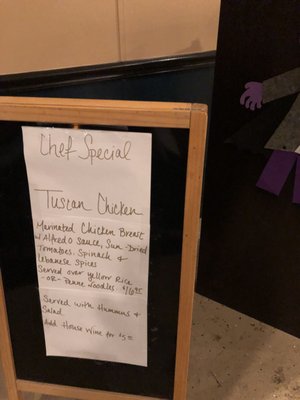 Chef Special
Tuscan Chicken
Marinated Chicken Breast
w/ Alfredo Sauce, Sun-Dried
Tomatoes, Spinach &
Lebanese Spices
Served over Yellow Rice
-OR- Penne Noodles. $16.95
Served with Hummus &
Salad
Add House Wine for $5.00